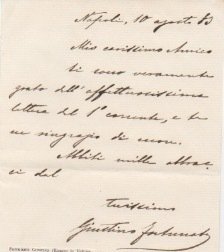 Napoli, 10 agosto 83
Mio carissimo Amico
ti sono veramente
grato dell'affettuosissima
lettera del 1° corrente, e te
ne ringrazio di cuore.
Abbiti mille abbrac-
ci dal
tuissimo
Giustino Fortunato